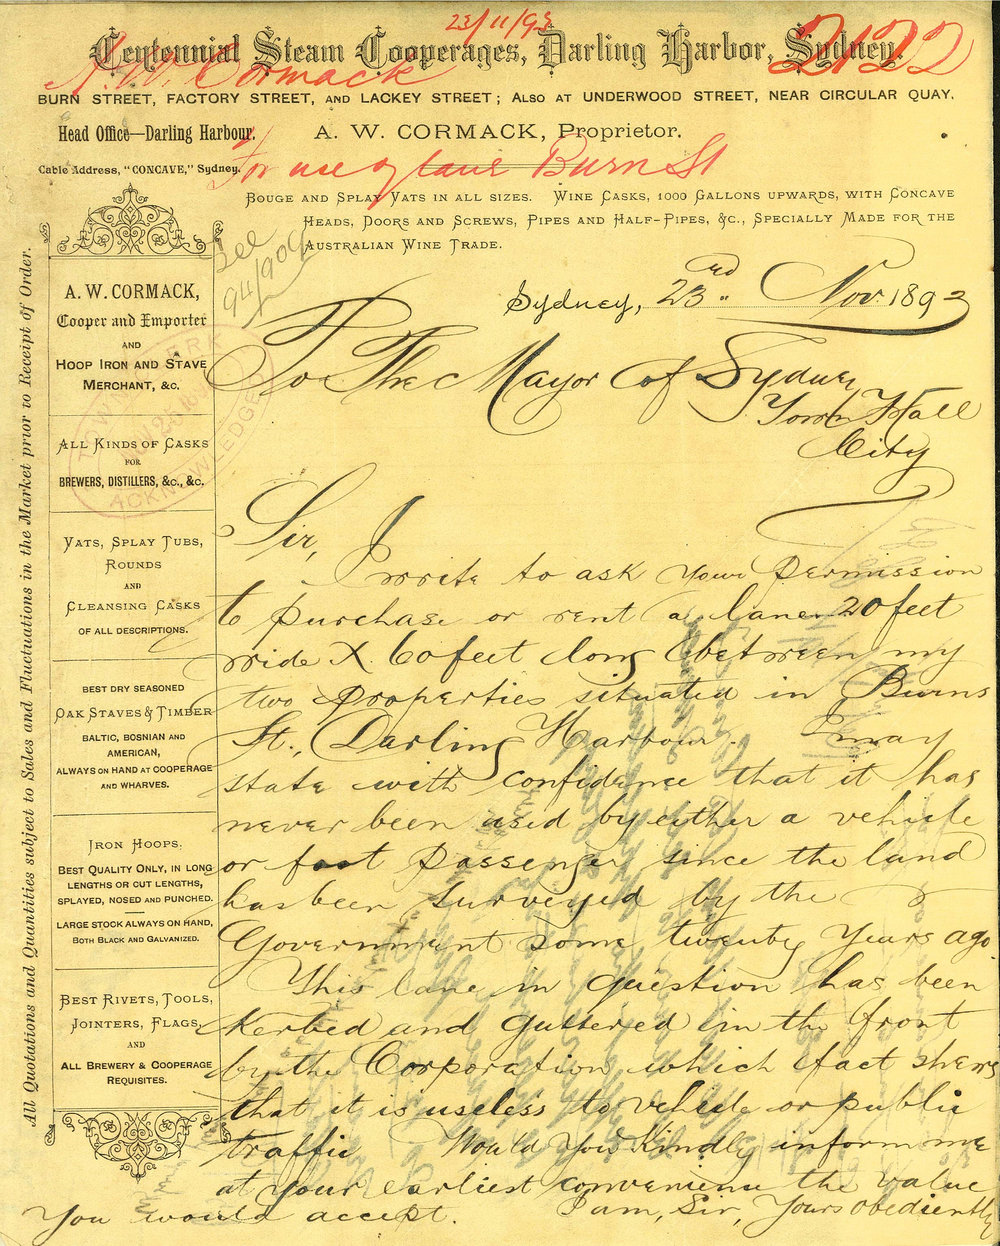 23/11/93
2122
Centennial Steam Cooperages, Darling Harbor, Sydney.
A. W. Cormack
BURN STREET, FACTORY STREET, AND LACKEY STREET; ALSO AT UNDERWOOD STREET, NEAR CIRCULAR QUAY.
Head Office—Darling Harbour.
A. W. CORMACK, Proprietor.
Cable Address, "CONCAVE," Sydney.
For use of lane Burn St
BOUGE AND SPLAY VATS IN ALL SIZES. WINE CASKS, 1000 GALLONS UPWARDS, WITH CONCAVE
HEADS, DOORS AND SCREWS, PIPES AND HALF-PIPES, &C., SPECIALLY MADE FOR THE
AUSTRALIAN WINE TRADE.
See
94/909
All Quotations and Quantities subject to Sales and Fluctuations in the Market prior to Receipt of Order.
A. W. CORMACK,
Cooper and Importer
AND
HOOP IRON AND STAVE
MERCHANT, &c.
TOWN CLERK
ACKNOWLEDGED
ALL KINDS OF CASKS
FOR
BREWERS, DISTILLERS, &c., &c.
VATS, SPLAY TUBS,
ROUNDS
AND
CLEANSING CASKS
OF ALL DESCRIPTIONS.
BEST DRY SEASONED
OAK STAVES & TIMBER
BALTIC, BOSNIAN AND
AMERICAN,
ALWAYS ON HAND AT COOPERAGE
AND WHARVES.
IRON HOOPS.
BEST QUALITY ONLY, IN LONG
LENGTHS OR CUT LENGTHS,
SPLAYED, NOSED AND PUNCHED.
LARGE STOCK ALWAYS ON HAND,
BOTH BLACK AND GALVANIZED.
BEST RIVETS, TOOLS,
JOINTERS, FLAGS,
AND
ALL BREWERY & COOPERAGE
REQUISITES.
Sydney, 23rd Nov. 1893
To The Mayor of Sydney
Town Hall
City
Sir,
I wrote to ask your permission
to purchase or rent a lane 20 feet
wide X 60 feet long between my
two properties situated in Burns
St., Darling Harbour. I may
state with confidence that it has
never been used by either a vehicle
or foot passenger since the land
has been surveyed by the
Government some twenty years ago.
This lane in question has been
kerbed and guttered in the front
by the Corporation which fact shews
that it is useless to vehicle or public
traffic Would you kindly inform me
at your earliest convenience the value
you would accept. I am, Sir, Yours obediently